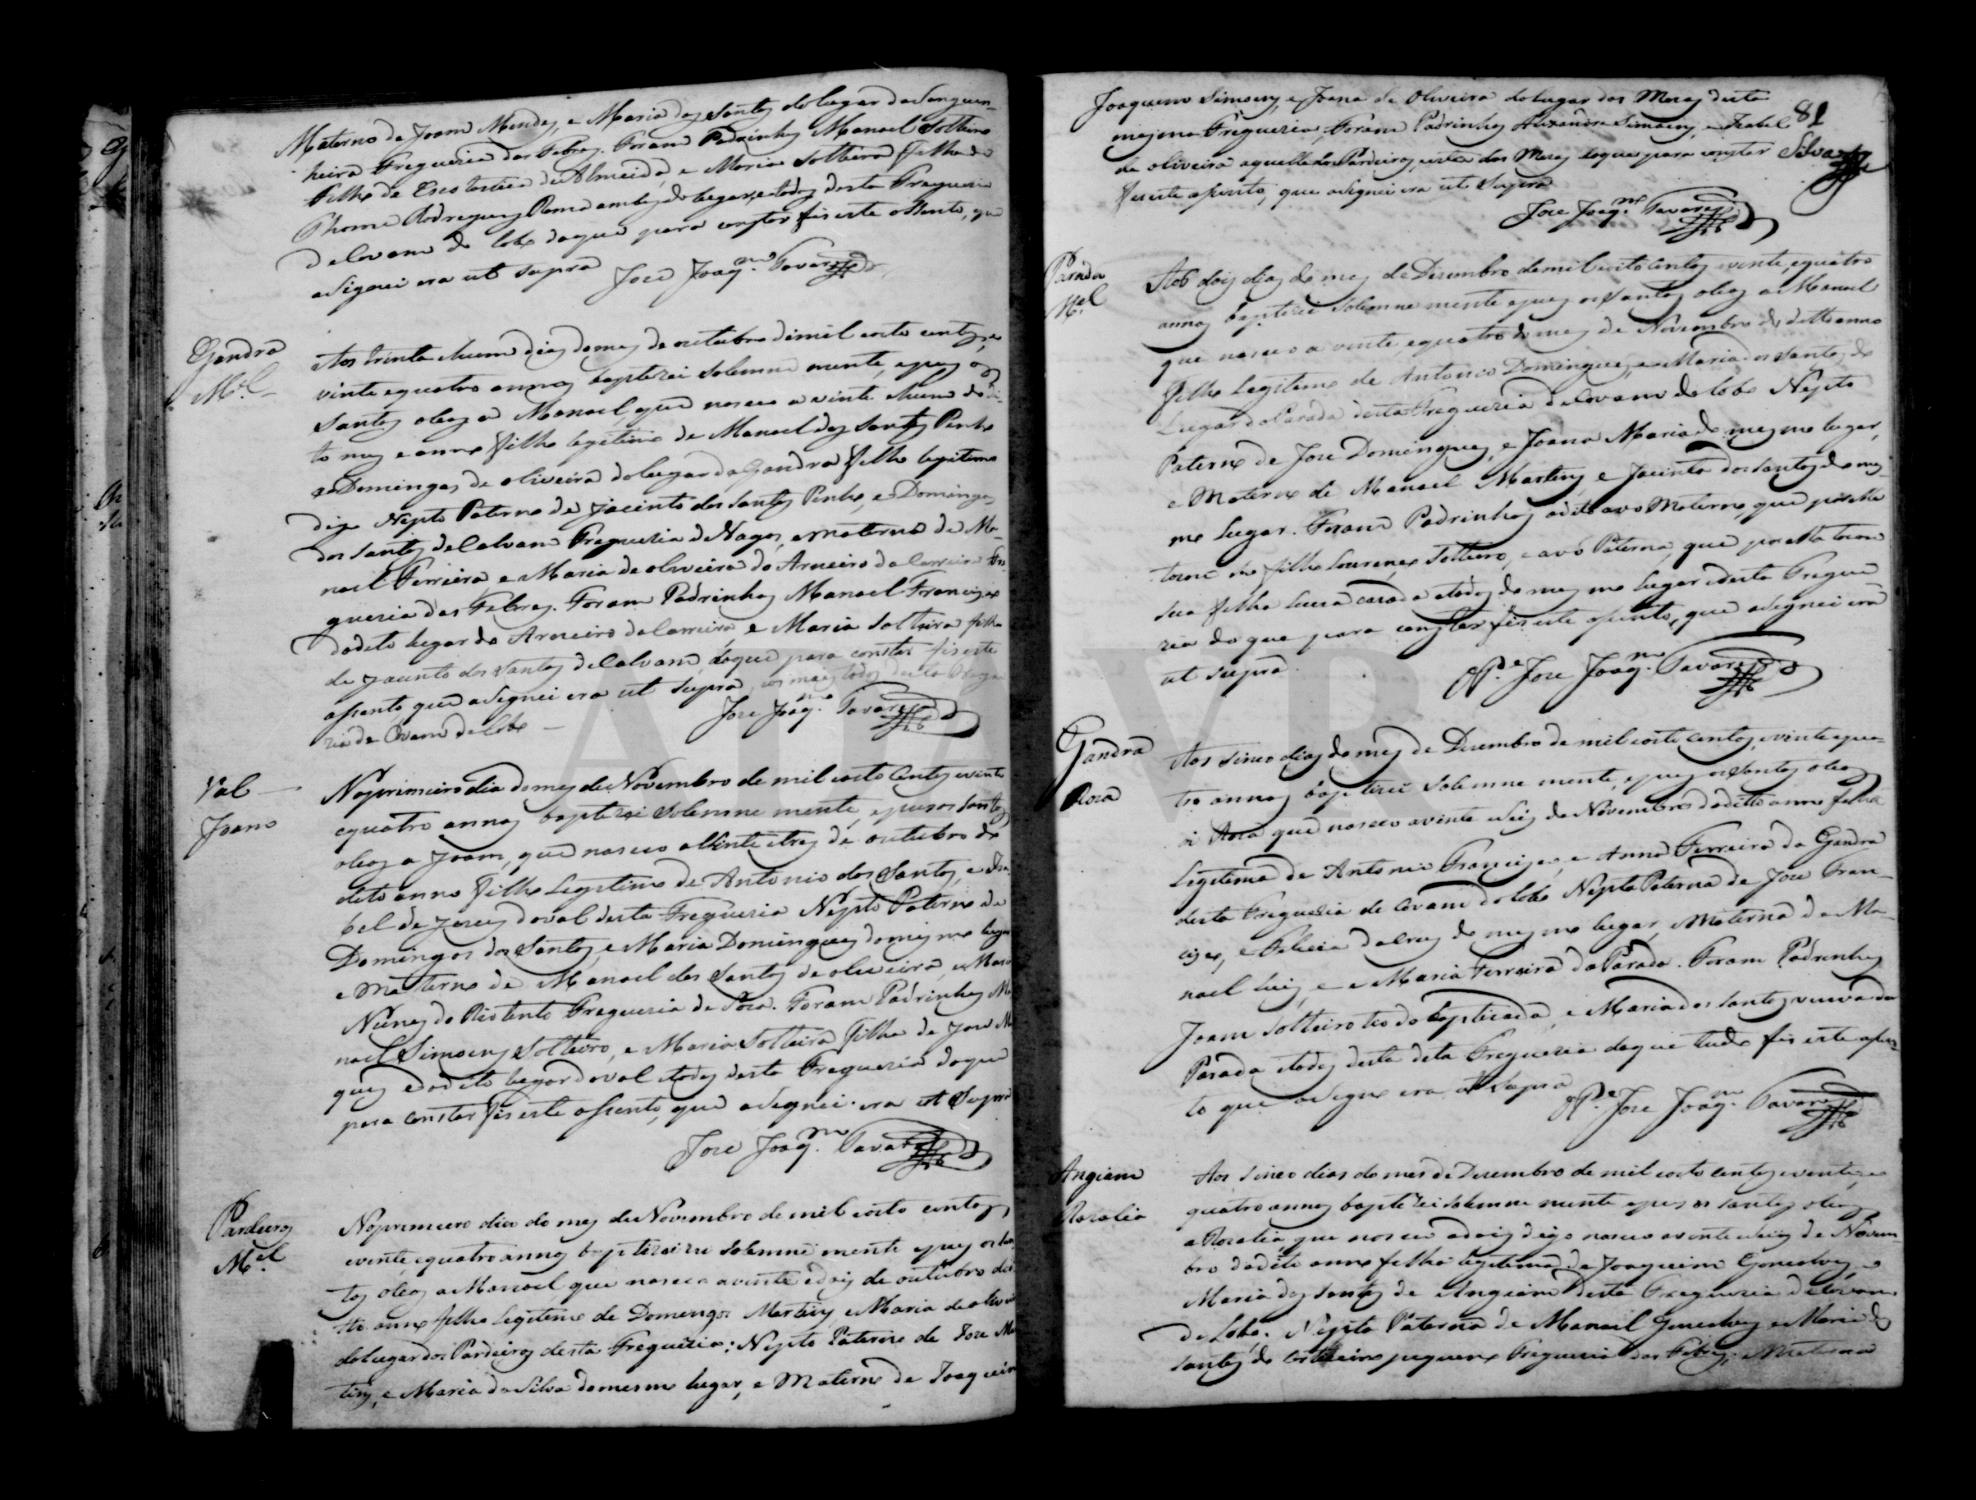 Materno de Joam Mendes, e Maria dos Santos do lugar da Sanguin-
heira Freguezia das Febres. Foram Padrinhos Manoel Solteiro
filho de Escolastica de Almeida, e Maria Solteira filha de
Thome Rodrigues ambos do lugar, e todos desta Freguezia
de Covam do Lobo do que para constar fis este assento, que
asignei era ut supra
Joze Joaq.m Tavares
Gandra
M.el
Aos trinta e hum dias do mes de outubro de mil oito centos, e
vinte e quatro annos baptizei solemne mente, e pus os
Santos oleos a Manoel, que nasceo a vinte e hum do di-
to mes e anno filho legitimo de Manoel dos Santos Penho
e Domingas de oliveira do lugar da Gandra filho legitimo
digo Nepto Paterno de Jacinto dos Santos Penho, e Domingas
dos Santos de Calvam Freguezia de Vagos, e materno de Ma-
noel Ferreira e Maria de oliveira do Arneiro da Carreira Fre-
guezia das Febres. Foram Padrinhos Manoel Francisco
do dito lugar do Arneiro da Carreira, e Maria Solteira filha
de Jacinto dos Santos de Calvam, do que para constar fis este
assento que asignei era ut supra, todos desta Fregue
zia de Covam do Lobo
Joze Joaq.m Tavares
Val
Joam
No primeiro dia do mes de Novembro de mil oito centos e vinte
e quatro annos baptizei solemne mente, e pus os Santos
oleos a Joam, que nasceo a vinte e tres de outubro do
dito anno filho Legitimo de Antonio dos Santos, e Iza-
bel de Jesus do Val desta Freguezia Nepto Paterno de
Domingos dos Santos, e Maria Domingues do mesmo lugar
e Materno de Manoel dos Santos de oliveira, e Maria
Nunes do Rio tinto Freguezia de Soza. Foram Padrinhos Ma
noel Simoens Solteiro, e Maria Solteira filha de Joze M
ques e do dito lugar do Val e todos desta Freguezia do que
para constar fis este assento, que asignei era ut Supra
Joze Joaq.m Tavares
Pardeiros
M.el
No primeiro dia do mes de Novembro de mil oito centos
e vinte e quatro annos baptizei solemne mente e pus os San
tos oleos a Manoel que nasceo a vinte e dois de outubro do di
to anno filho Legitimo de Domingos Martins, e Maria de olivei
do lugar dos Pardeiros desta Freguezia; Nepto Paterno de Joze Mar
tins, e Maria da Silva do mesmo lugar, e Materno de Joaquim
81
Silva
Joaquim Simoens, e Joana de Oliveira do lugar dos Moras desta
mesma Freguezia, Foram Padrinhos Alexandre Simoens, e Izabel
de oliveira aquelle dos Pardeiros, e esta dos Moras do que para constar
fis este asento, que asignei era ut Supra
Joze Joaq.m Tavares
Parada
M.el
Aos dois dias do mes de Dezembro de mil oito centos e vinte, e quatro
annos baptizei solemne mente e pus os Santos oleos a Manoel
que nasceo a vinte e quatro do mes de Novembro do ditto anno
filho Legitimo de Antonio Domingues, e Maria dos Santos do
Lugar da Parada desta Freguezia de Covam do Lobo Nepto
Paterno de Joze Domingues, e Joana Maria do mesmo lugar,
e Materno de Manoel Martins, e Jacinta dos Santos do mes
mo lugar. Foram Padrinhos o dito avo Materno, que
tocou seu filho Lourenço Solteiro, e avó Paterna, que por ella tocou
sua filha Luiza cazada e todos do mesmo lugar e desta Fregue
zia do que para constar fis este asento, que asignei era
ut supra.
O P.e Joze Joaq.m Tavares
Gandra
Roza
Aos sinco dias do mes de Dezembro de mil oito centos, e vinte e qua-
tro annos baptizei solemne mente, e pus os Santos oleos
a Roza que nasceo a vinte e seis de Novembro do ditto anno filha
Legitima de Antonio Francisco, e Anna Ferreira da Gandra
desta Freguezia de Covam do Lobo Nepta Paterna de Joze Fran-
cisco, e Felicia da Cruz do mesmo lugar, e Materna de Ma-
noel Luis, e Maria Ferreira da Parada. Foram Padrinhos
Joam Solteiro tio da baptizada, e Maria dos Santos viuva da
Parada e todos desta dita Freguezia do que tudo fis este asen-
to que asignei era ut supra
O P.e Joze Joaq.m Tavares
Angiam
Rozalia
Aos sinco dias do mes de Dezembro de mil oito centos e vinte, e
quatro annos baptizei solemne mente e pus os Santos oleos
a Rozalia que nasceo a dois digo nasceo a vinte e seis de Novem-
bro do dito anno filha legitima de Joaquim Goncalves, e
Maria dos Santos de Angiam desta Freguezia de Covam
do Lobo. Nepta Paterna de Manoel Goncalves e Maria dos
Santos do Corticeiro pequeno Freguezia das Febres; e Materna